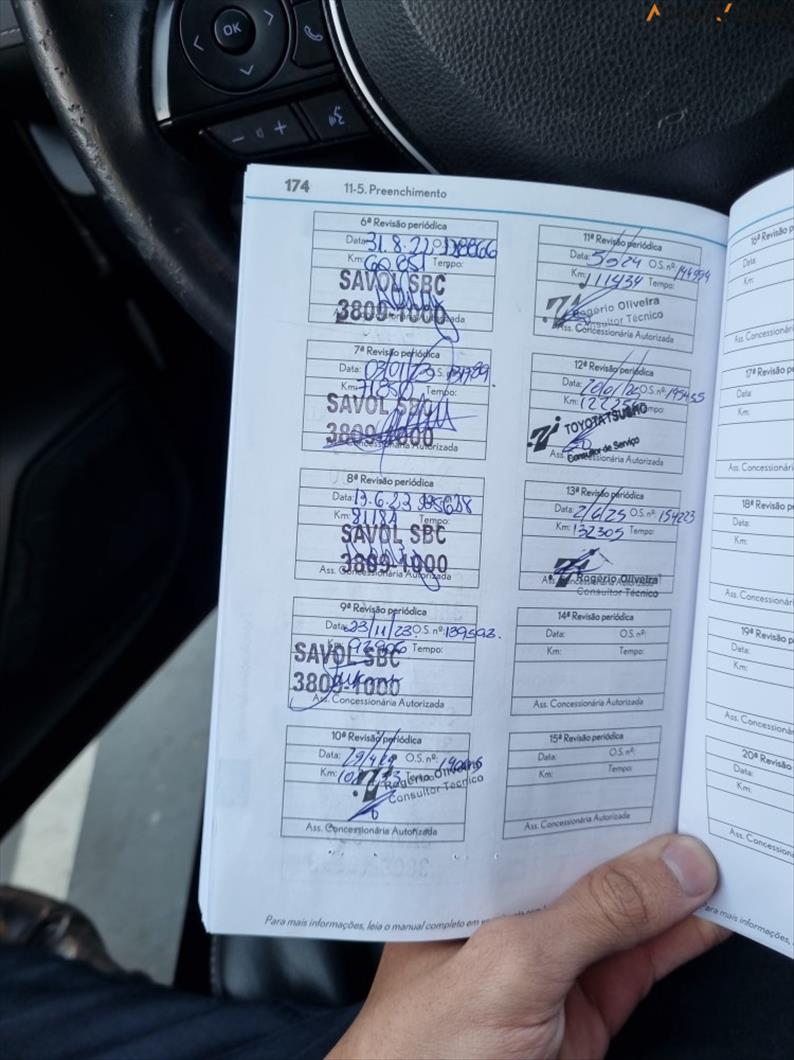 OK
174 11-5. Preenchimento
6ª Revisão periódica
Data: 31.8.22 O.S. nº:
Km: 60.851 Tempo:
SAVOL SBC
3809-1000
Ass. Concessionária Autorizada
7ª Revisão periódica
Data: 03/01/23 O.S. nº:
Km: 71850 Tempo:
SAVOL SBC
3809-1000
Ass. Concessionária Autorizada
8ª Revisão periódica
Data: 13.6.23
Km: 81184 Tempo:
SAVOL SBC
3809-1000
Ass. Concessionária Autorizada
9ª Revisão periódica
Data: 23/11/23 O.S. nº: 139593.
Km: 92906 Tempo:
SAVOL SBC
3809-1000
Ass. Concessionária Autorizada
10ª Revisão periódica
Data: O.S. nº:
Km: Tempo:
Rogério Oliveira
Consultor Técnico
Ass. Concessionária Autorizada
11ª Revisão periódica
Data: O.S. nº: 144994
Km: 111434 Tempo:
Rogério Oliveira
Consultor Técnico
Ass. Concessionária Autorizada
12ª Revisão periódica
Data: O.S. nº:
Km: Tempo:
TOYOTA TSUSHO
Consultor de Serviço
Ass. Concessionária Autorizada
13ª Revisão periódica
Data: 2/6/25 O.S. nº: 154223
Km: 132305 Tempo:
Rogério Oliveira
Ass. Concessionária Autorizada
Consultor Técnico
14ª Revisão periódica
Data: O.S. nº:
Km: Tempo:
Ass. Concessionária Autorizada
15ª Revisão periódica
Data: O.S. nº:
Km: Tempo:
Ass. Concessionária Autorizada
Para mais informações, leia o manual completo em
16ª Revisão
Data:
Km:
Ass. Concessionária
17ª Revisão
Data:
Km:
Ass. Concessionári
18ª Revisão
Data:
Km:
Ass. Concessionári
19ª Revisão
Data:
Km:
Ass. Concessionár
20ª Revisão
Data:
Km:
Ass. Concession
Para mais informações,